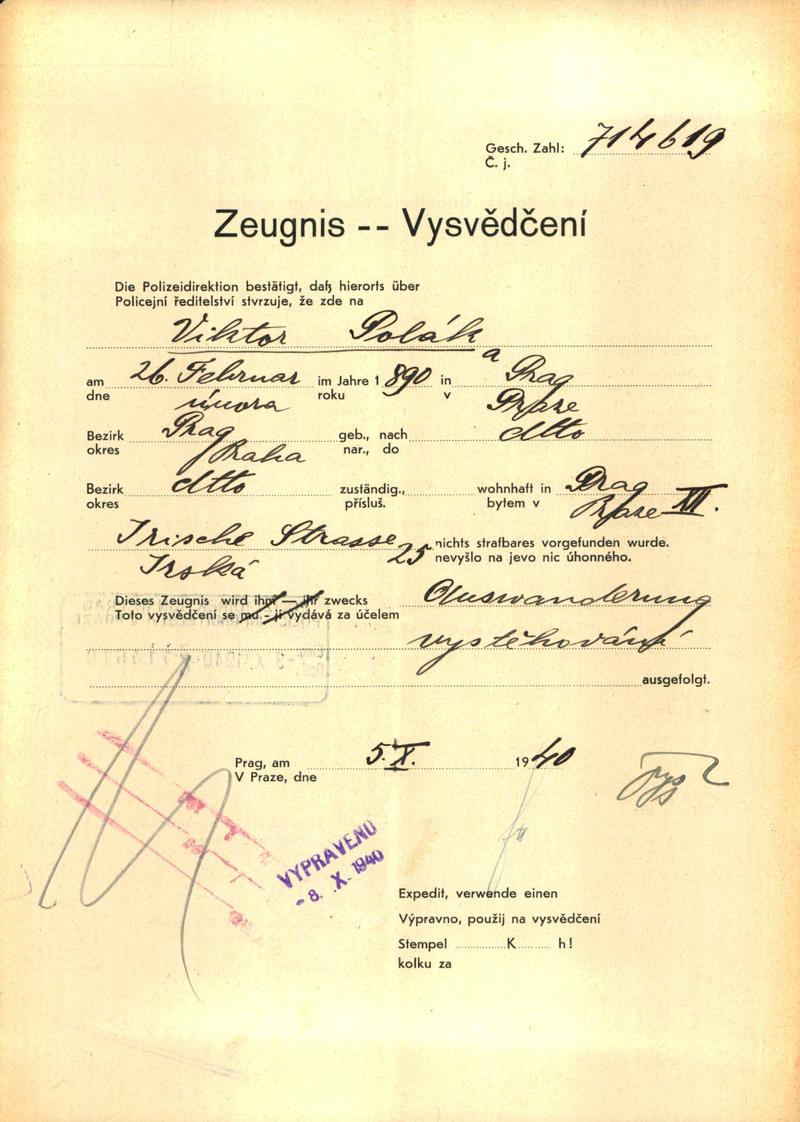 Gesch. Zahl: 714619
Č. j.
Zeugnis -- Vysvědčení
Die Polizeidirektion bestätigt, daß hierorts über
Policejní ředitelství stvrzuje, že zde na
Viktor Polák
am 26. Februar im Jahre 1 890 in Prag
dne února roku v Praze
Bezirk Prag geb., nach dtto
okres Praha nar., do
Bezirk dtto zuständig., wohnhaft in Prag
okres přísluš. bytem v Praze XII.
Irische Strasse 25 nichts strafbares vorgefunden wurde.
Irská nevyšlo na jevo nic úhonného.
Dieses Zeugnis wird ihm — ihr zwecks Auswanderung
Toto vysvědčení se mu - jí vydává za účelem
vystěhování
ausgefolgt.
Prag, am 5. X. 1940
V Praze, dne
VYPRAVENO
- 8. X. 1940
Expedit, verwende einen
Výpravno, použij na vysvědčení
Stempel K h!
kolku za